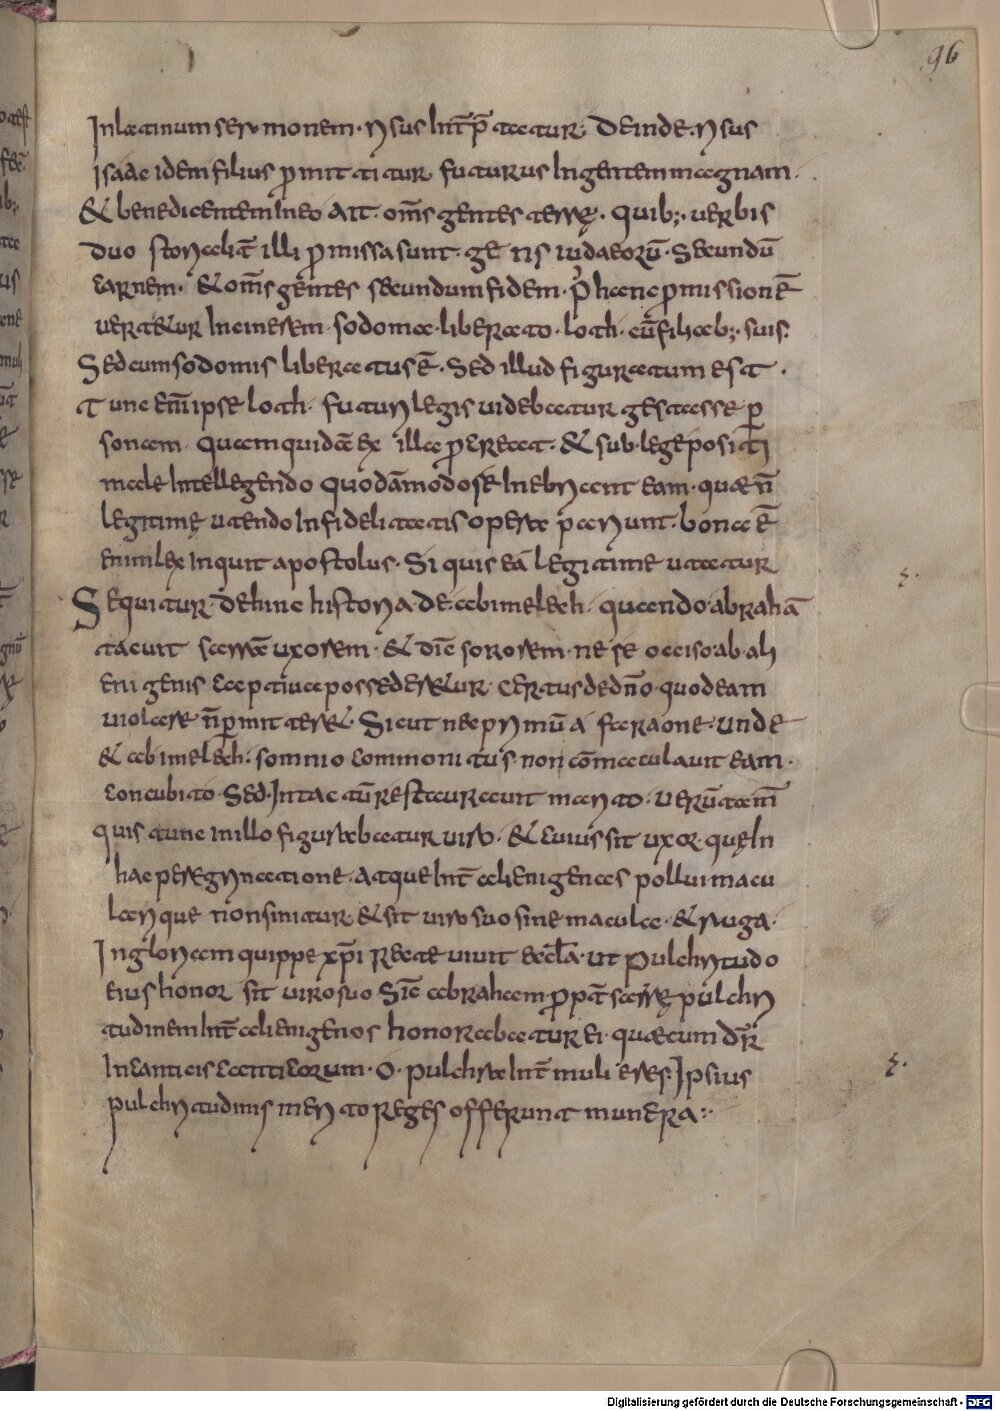 96
Inlatinum sermonem· risus Int̄p̄tatur· Deinde· risus
isaac idem filius p̄mittitur futurus Ingentem magnam·
& benedicentem Ineo Ait· om̄s gentes terrę· Quib;· uerbis
duo israhelit illi p̄missa sunt· gentis iudaeorū· Secundū
carnem· & om̄s gentes secundum fidem· p' hanc p̄missionē
uertetur Incinerem· sodomae· liberato· loth· cū filiab;· suis·
Sed cum sodomis liberatus ē· Sed illud figuratum est·
Tunc eni̅ ipse loth· futuri legis uidebatur gestasse p̱
sonam· Quam quidā ex illa p̄creat· & sub· lege positi
male Intellegendo quodāmodo se Inebriant eam· quā n̄
legitimę utendo Infidelitatis opera pariunt· bona ē
enim lex inquit apostolus· Si quis eā legitime utatur
Sequitur· dehinc historia· de abimelech· quando· abrahā
tacuit sarrā uxorem· & dic̄ sororem· ne se occiso· ab· ali
enigenis captiua possederetur· certus de dn̄o· quod eam
uiolare n̄ p̱mitteret· Sicut nec primū a faraone· unde
& abimelech: somnio commonitus· non cōmaculauit eam·
concubito· Sed· Intactū restaurauit marito· uerūtam̄
quis tunc in illo figurabatur uiro· & cuius sit uxor· quę In
hac peregrinatione· atque Int̄ alienigenas pollui macu
larique non sinitur & sit uiro suo sine macula· & ruga·
In gloriam quippe xp̄i Recte uiuit eccl̄a· ut pulchritudo
eius honor sit uiro suo Sic̄ abraham· p̄pt̄ sarrę pulchri
tudinem Int̄ alienigenos honorabatur ei· quae cum dr̄
In canticis canticorum· O· pulchra Int̄ mulieres· Ipsius
pulchritudinis merito Reges offerunt munera:·
Digitalisierung gefördert durch die Deutsche Forschungsgemeinschaft - DFG